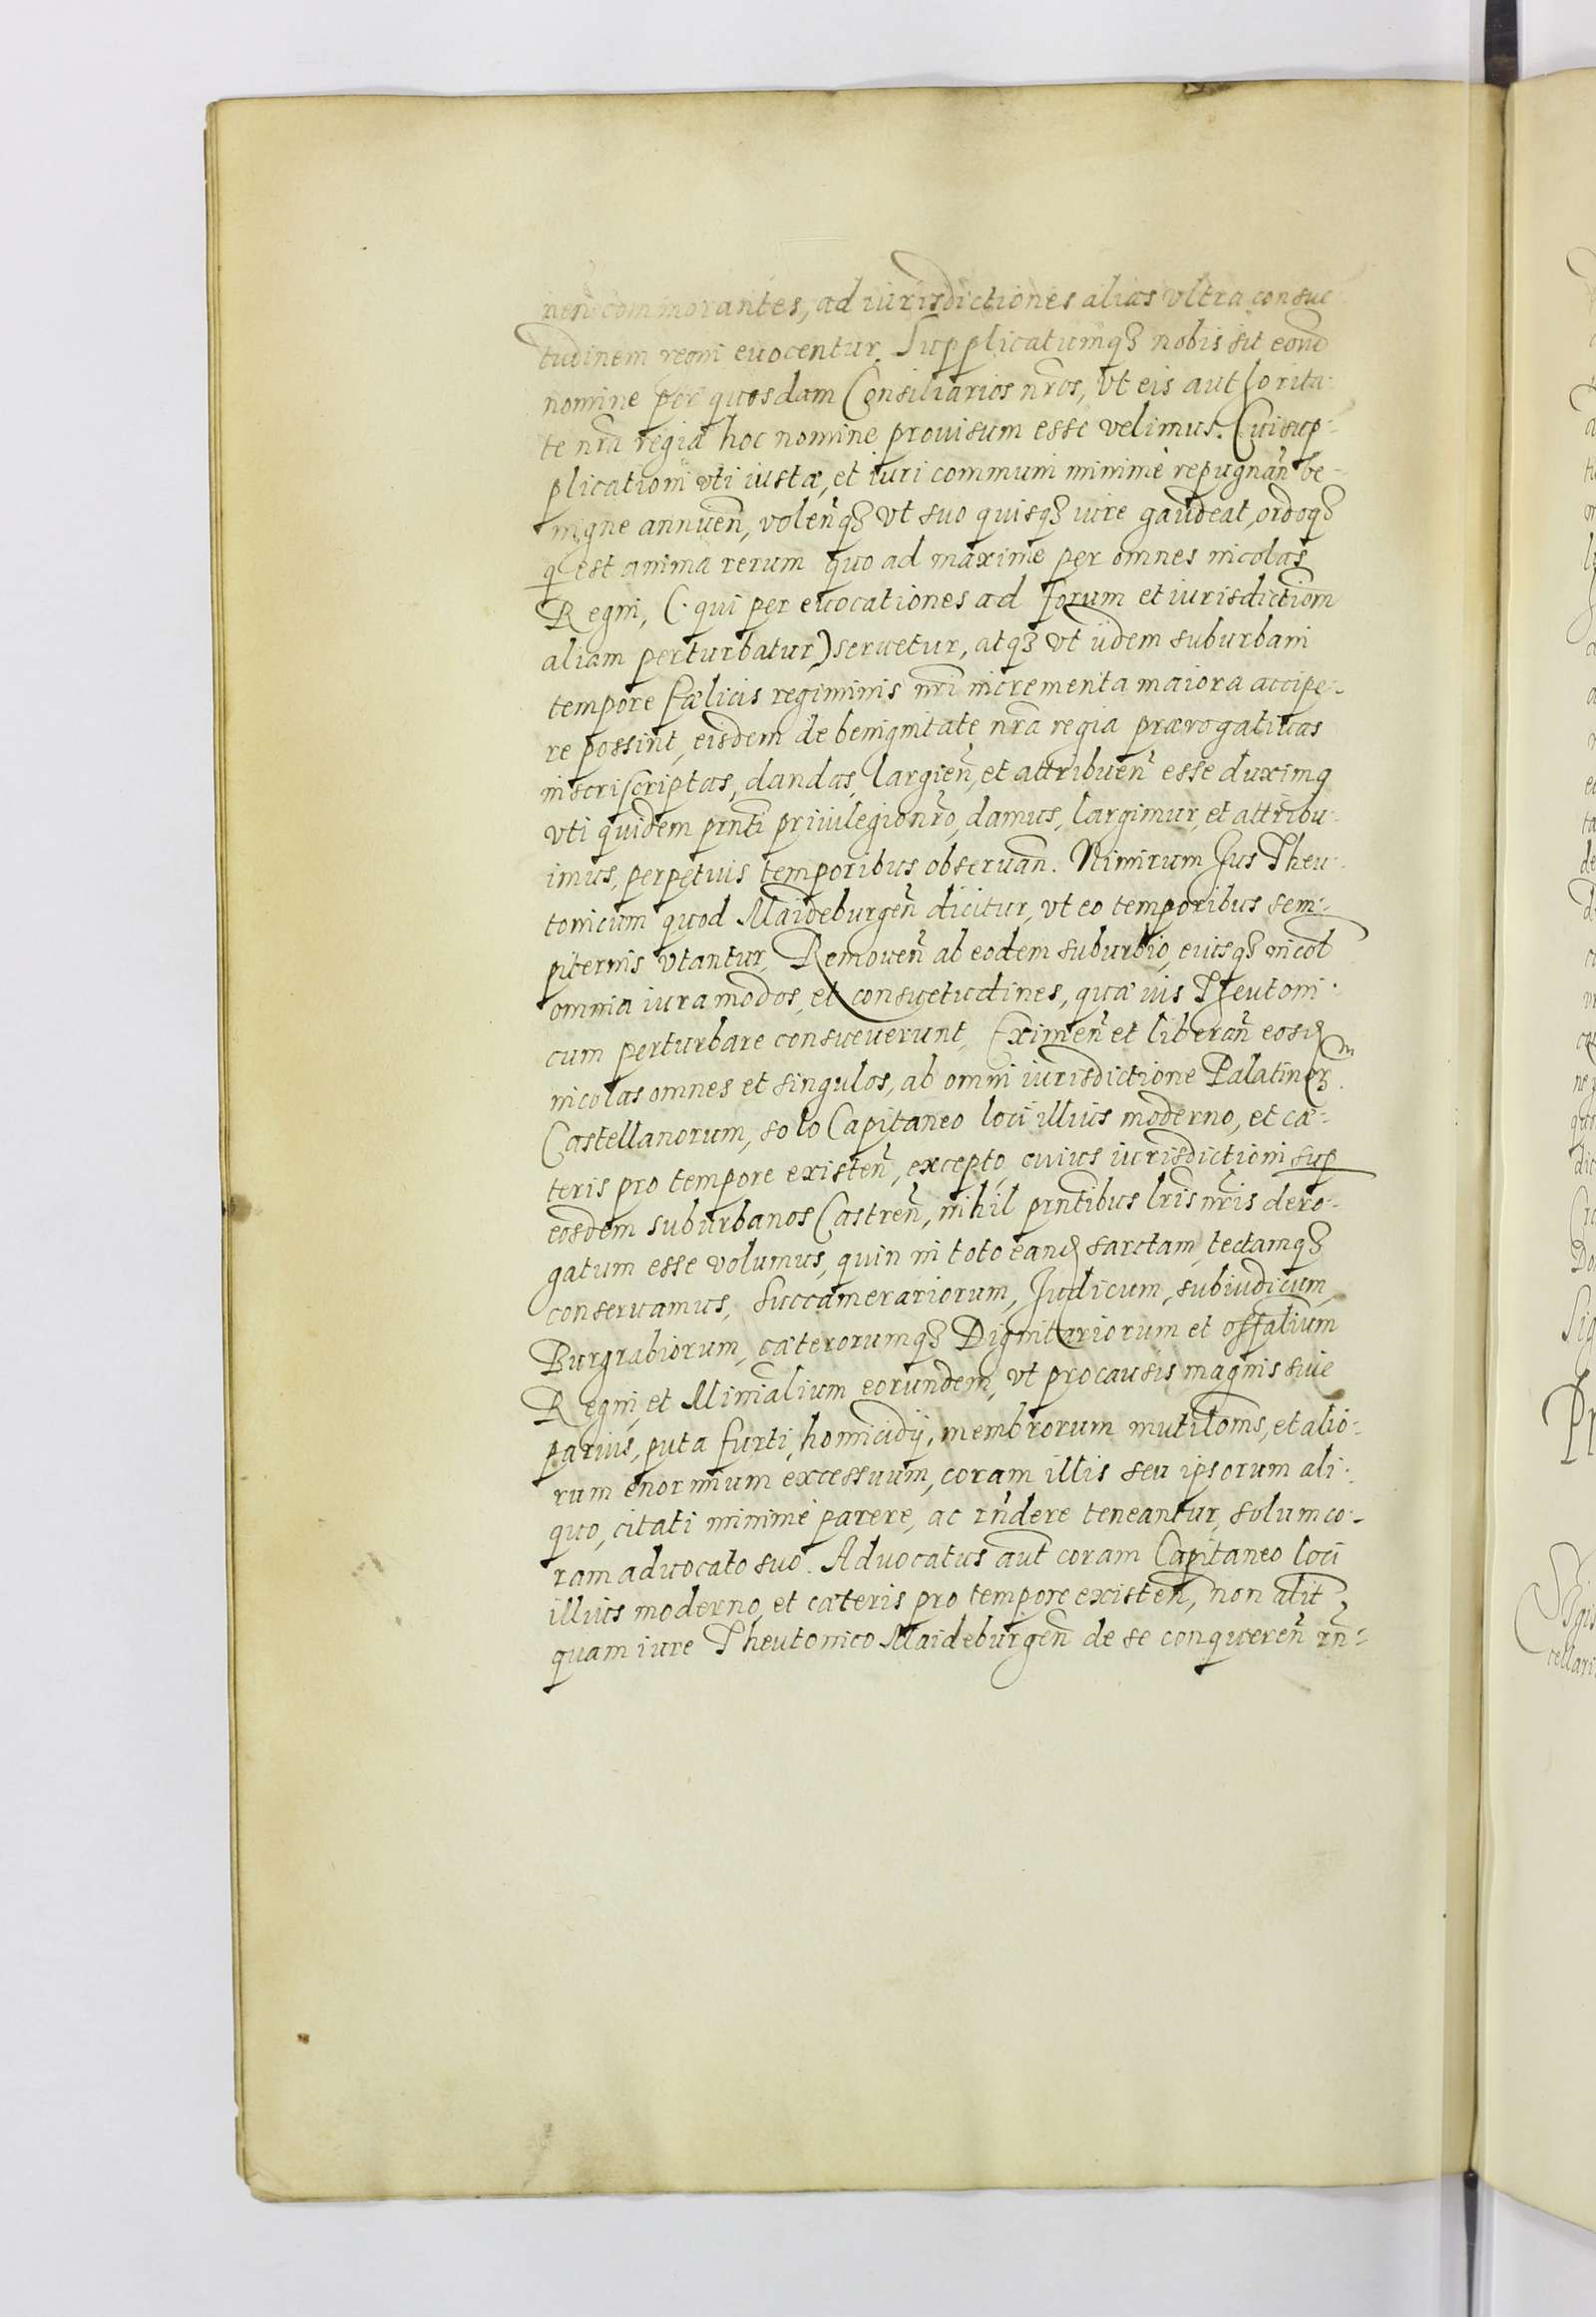 nen̄ commorantes, ad iurisdictiones alias vltra consue
tudinem regni euocentur. Supplicatumq₃ nobis sit eorūd
nomine per quosdam Consiliarios nr̄os, vt eis authorita-
te nr̄a regia hoc nomine prouisum esse velimus. Cui sup-
plicationi vti iustæ, et iuri communi minimè repugnan̄ be-
nigne annuen̄, volen̄q₃ vt suo quisq₃ iure gaudeat, ordoq₃
q̄ est anima rerum quo ad maxime per omnes incolas
Regni, (qui per euocationes ad forum et iurisdictiom̄
aliam perturbatur) seruetur, atq₃ vt ijdem suburbani
tempore fælicis regiminis nr̄i incrementa maiora accipe-
re possint, eisdem de benignitate nr̄a regia prærogatiuas
infrascriptas, dandas, largien̄, et attribuen̄ esse duximq
vti quidem pn̄ti priuilegio nr̄o, damus, largimur, et attribu-
imus, perpetuis temporibus obseruan̄. Nimirum Jus Theu-
tonicum quod Maideburgen̄ dicitur, vt eo temporibus sem-
piternis vtantur, Remouen̄ ab eodem suburbio, eiusq₃ incol̄
omnia iura modos, et consuetudines, quæ ius Theutoni-
cum perturbare consueuerunt, Eximen̄ et liberan̄ eosdm
incolas omnes et singulos, ab omni iurisdictione Palatinoꝝ
Castellanorum, solo Capitaneo loci illius moderno, et cæ-
teris pro tempore existen̄, excepto, cuius iurisdictioni sup
eosdem suburbanos Castren̄, nihil pn̄tibus lr̄is nr̄is dero-
gatum esse volumus, quin in toto eand sarctam, tectamq₃
conseruamus, Succamerariorum, Judicum, subiudicum,
Burgrabiorum, cæterorumq₃ Dignitariorum et offālium
Regni, et Minīalium eorundem, vt pro causis magnis siue
paruis, puta furti, homicidij, membrorum mutilōnis, et alio-
rum enormium excessuum, coram illis seu ipsorum ali-
quo, citati minimè parere, ac rn̄dere teneantur, solum co-
ram aduocato suo. Aduocatus aut̄ coram Capitaneo loci
illius moderno, et cæteris pro tempore existen̄, non alit̄
quam iure Theutonico Maideburgen̄ de se conqueren̄ rn̄-